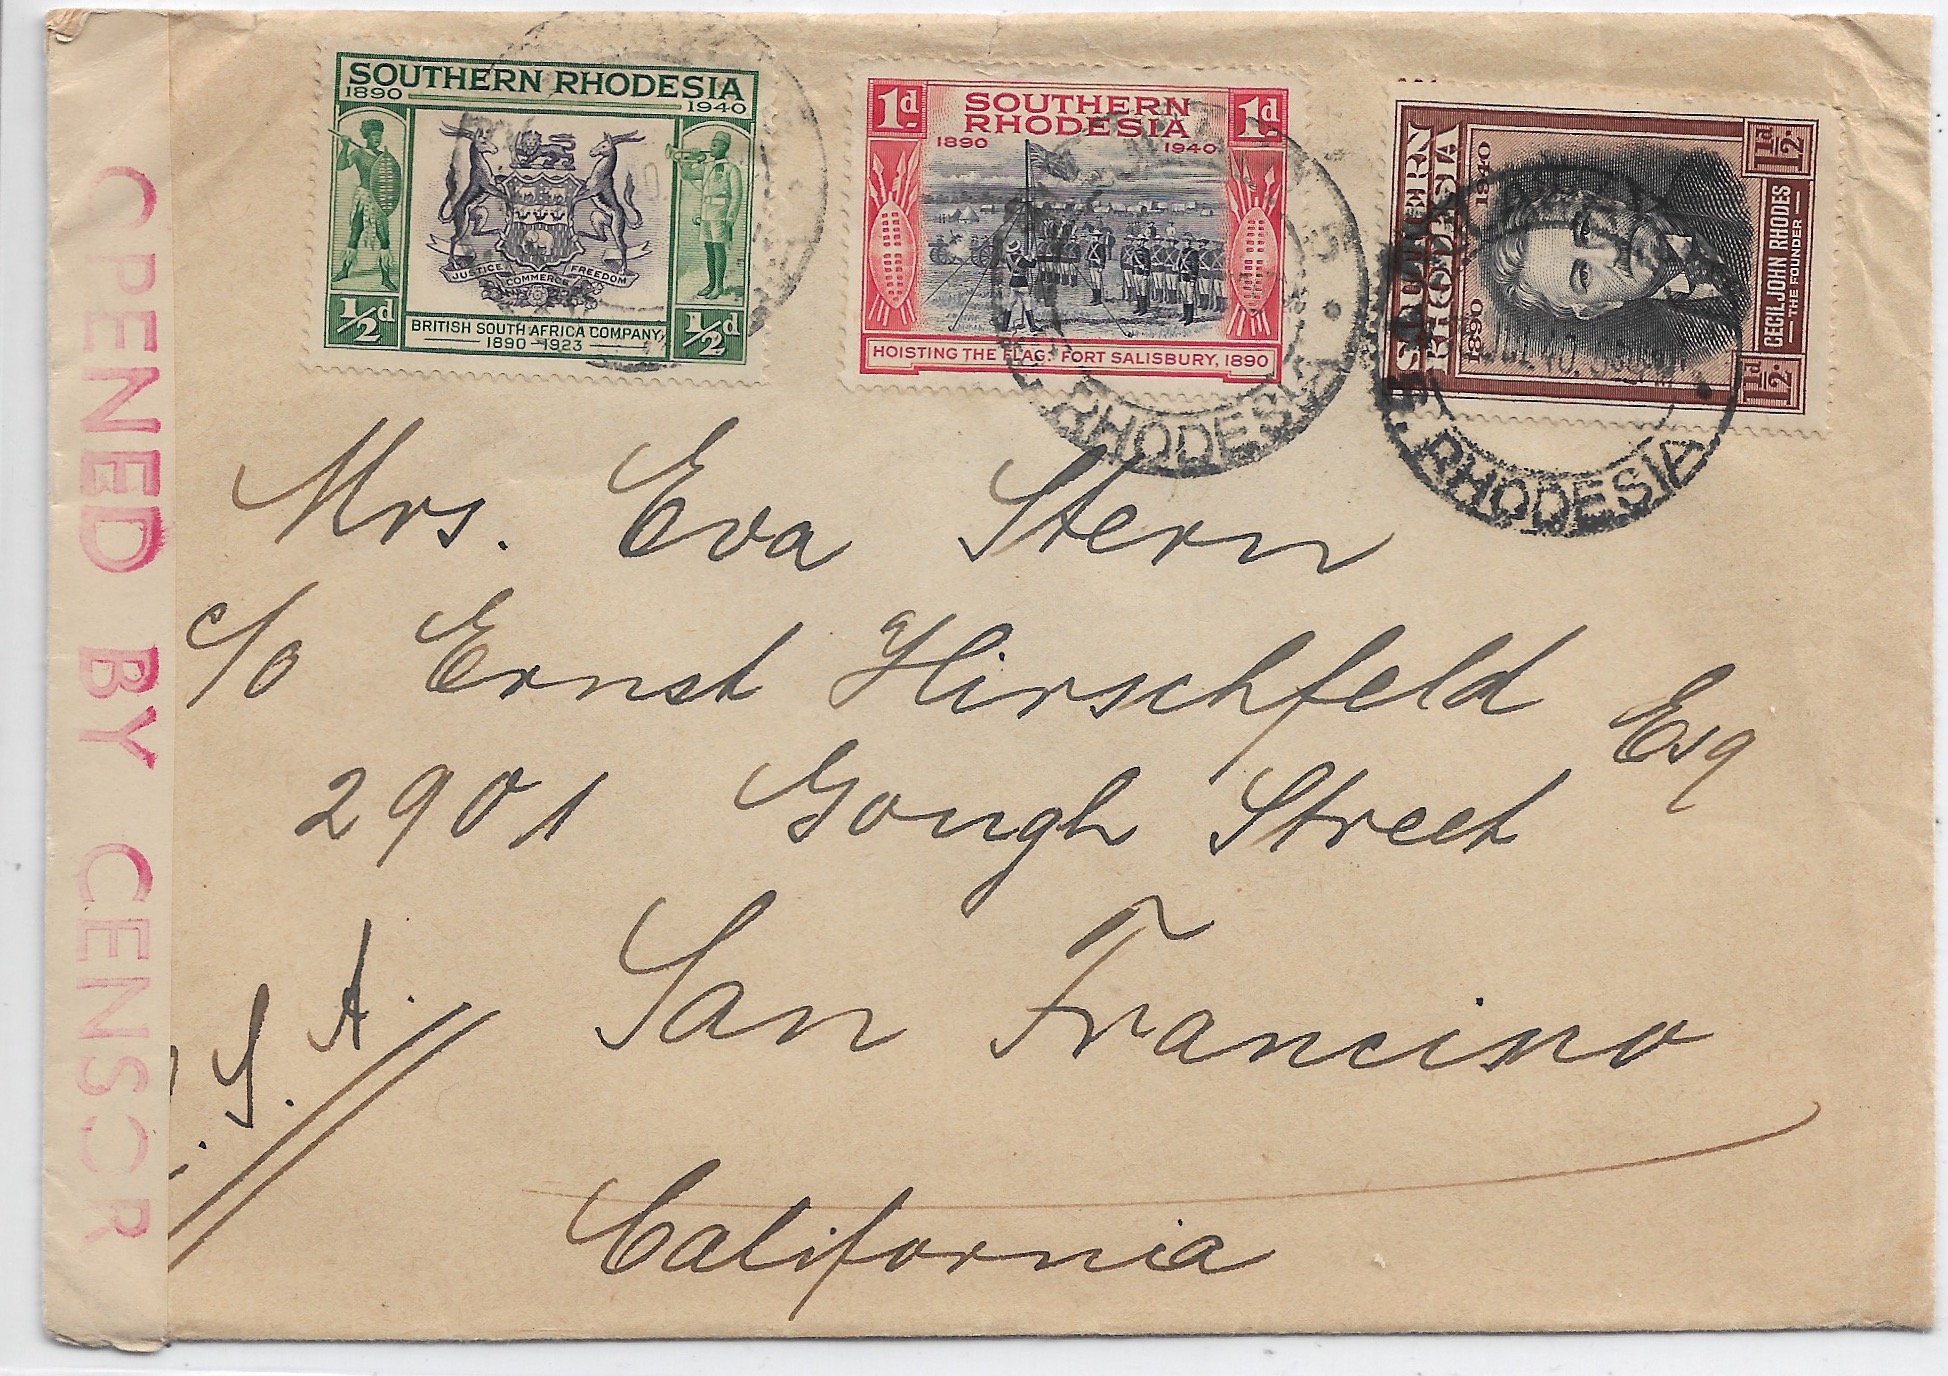 SOUTHERN RHODESIA
1890 1940
JUSTICE COMMERCE FREEDOM
½d ½d
BRITISH SOUTH AFRICA COMPANY,
1890-1923
1d 1d
SOUTHERN
RHODESIA
1890 1940
HOISTING THE FLAG: FORT SALISBURY, 1890
SOUTHERN
RHODESIA
1890 1940
1½d. 1½d.
CECIL JOHN RHODES
THE FOUNDER
RHODESIA
RHODESIA
OPENED BY CENSOR
Mrs. Eva Stern
c/o Ernst Hirschfeld Esq
2901 Gough Street
San Francisco
California
S. A.